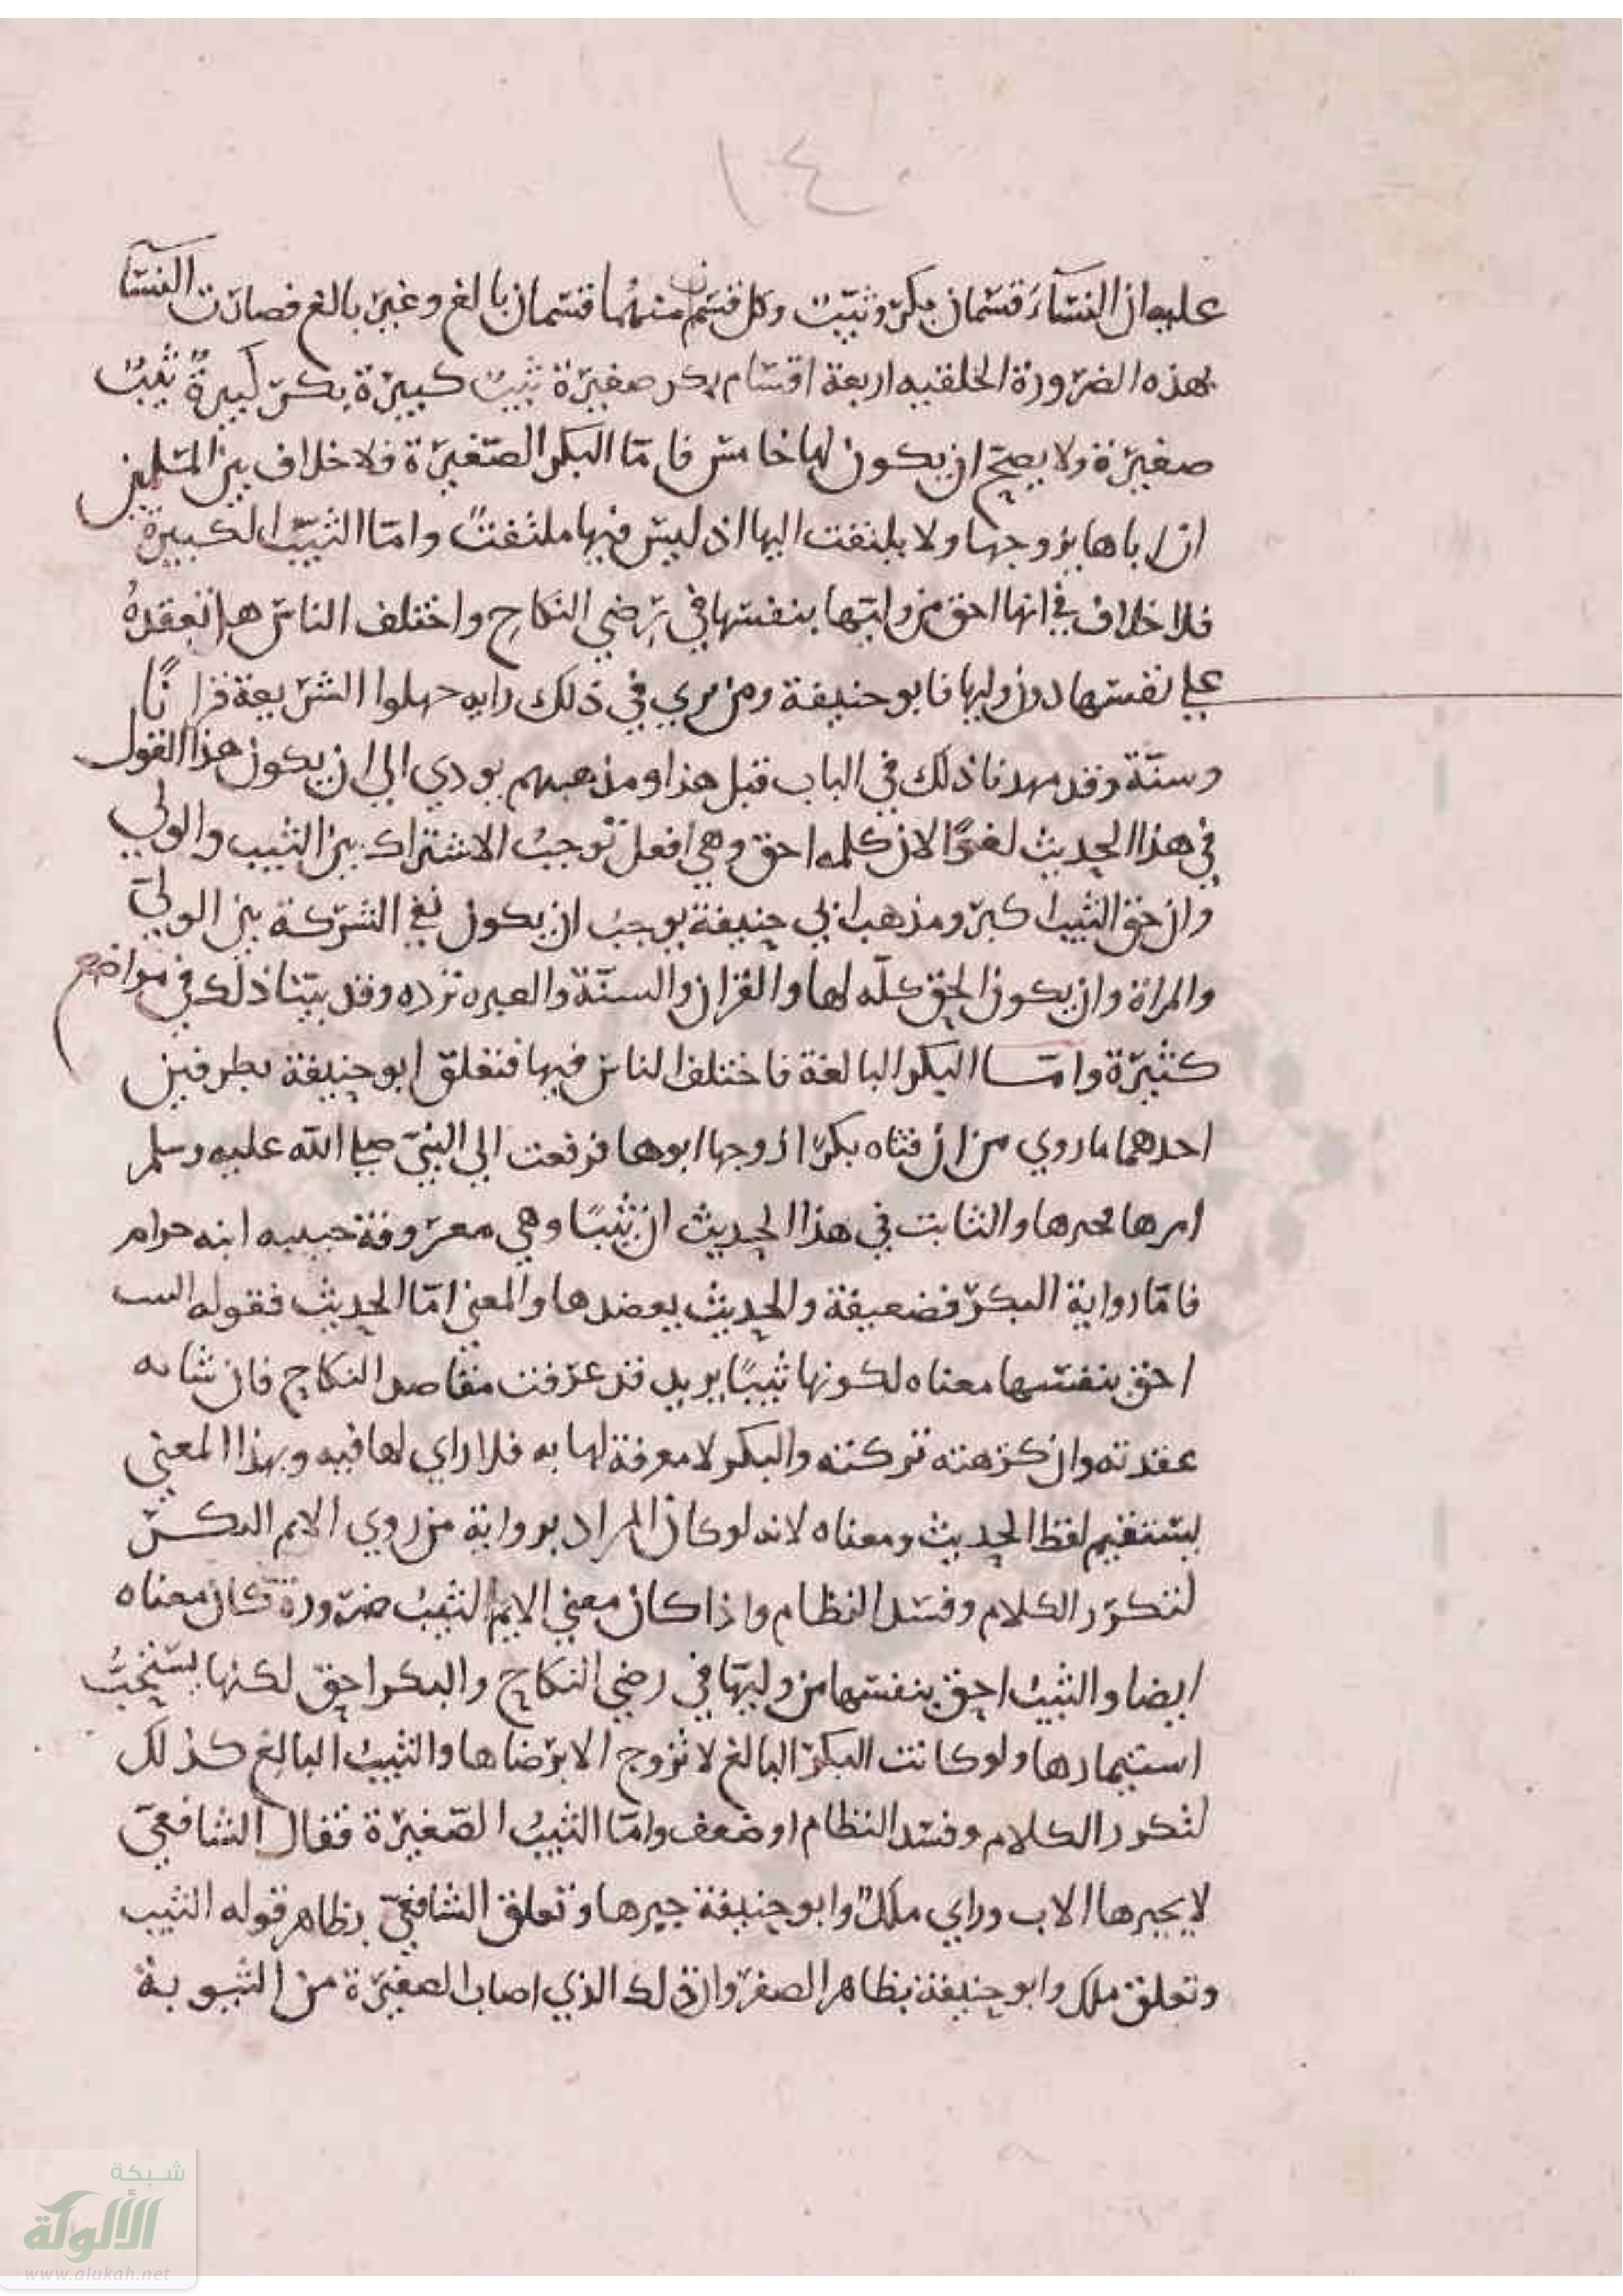 ١٤٠
عليه ان النسآء قسمان بكر وثيب وكل قسم منهما قسمان بالغ وغير بالغ فصارت النسآ
بهذه الضرورة الخلقيه اربعة اقسام بكر صغيرة ثيب كبيرة بكر كبيرة ثيب
صغيرة ولا يصح ان يكون لها خامس فاما البكر الصغيرة فلا خلاف بين المسلمين
ان اباها يزوجها ولا يلتفت اليها اذ ليس فيها ملتفت واما الثيب الكبيرة
فلا خلاف في انها احق من وليها بنفسها في رضي النكاح واختلف الناس هل تعقده
علي نفسها دون وليها فابو حنيفة ومن يري في ذلك رايه جهلوا الشريعة قرانًا
وسنة وقد مهدنا ذلك في الباب قبل هذا ومذهبهم يودي الي ان يكون هذا القول
في هذا الحديث لغوًا لان كلمه احق وهي افعل توجب الاشتراك بين الثيب والولي
وان حق الثيب اكبر ومذهب ابي حنيفة يوجب ان يكون نفي الشركة بين الولي
والمراة وان يكون الحق كله لها والقران والسنة والعبره ترده وقد بينا ذلك في مواضع
كثيرة واما البكر البالغة فاختلف الناس فيها فتعلق ابو حنيفة بطرفين
احدهما ما روي من ان فتاه بكرًا زوجها ابوها فرفعت الي النبي صلي الله عليه وسلم
امرها فخيرها والثابت في هذا الحديث ان ثيبًا وهي معروفة حبيبه ابنه حرام
فاما رواية البكر فضعيفة والحديث يعضدها والمعني اما الحديث فقوله الثيب
احق بنفسها معناه لكونها ثيبًا يريد قد عرفت مقاصد النكاح فان شاته
عقدته وان كرهته تركته والبكر لا معرفة لها به فلا راي لها فيه وبهذا المعني
يستقيم لفظ الحديث ومعناه لانه لو كان المراد برواية من روي الايم البكر
لتكرر الكلام وفسد النظام واذا كان معني الايم الثيب ضرورة كان معناه
ايضا والثيب احق بنفسها من وليها في رضي النكاح والبكر احق لكنها يستحب
استيمارها ولو كانت البكر البالغ لا تزوج الا برضاها والثيب البالغ كذلك
لتكرر الكلام وفسد النظام او ضعف واما الثيب الصغيرة فقال الشافعي
لا يجبرها الاب وراي ملك وابو حنيفة جبرها وتعلق الشافعي بظاهر قوله الثيب
وتعلق ملك وابو حنيفة بظاهر الصغر وان ذلك الذي اصاب الصغيرة من الثيوبة
شبكة
الألوكة
www.alukah.net